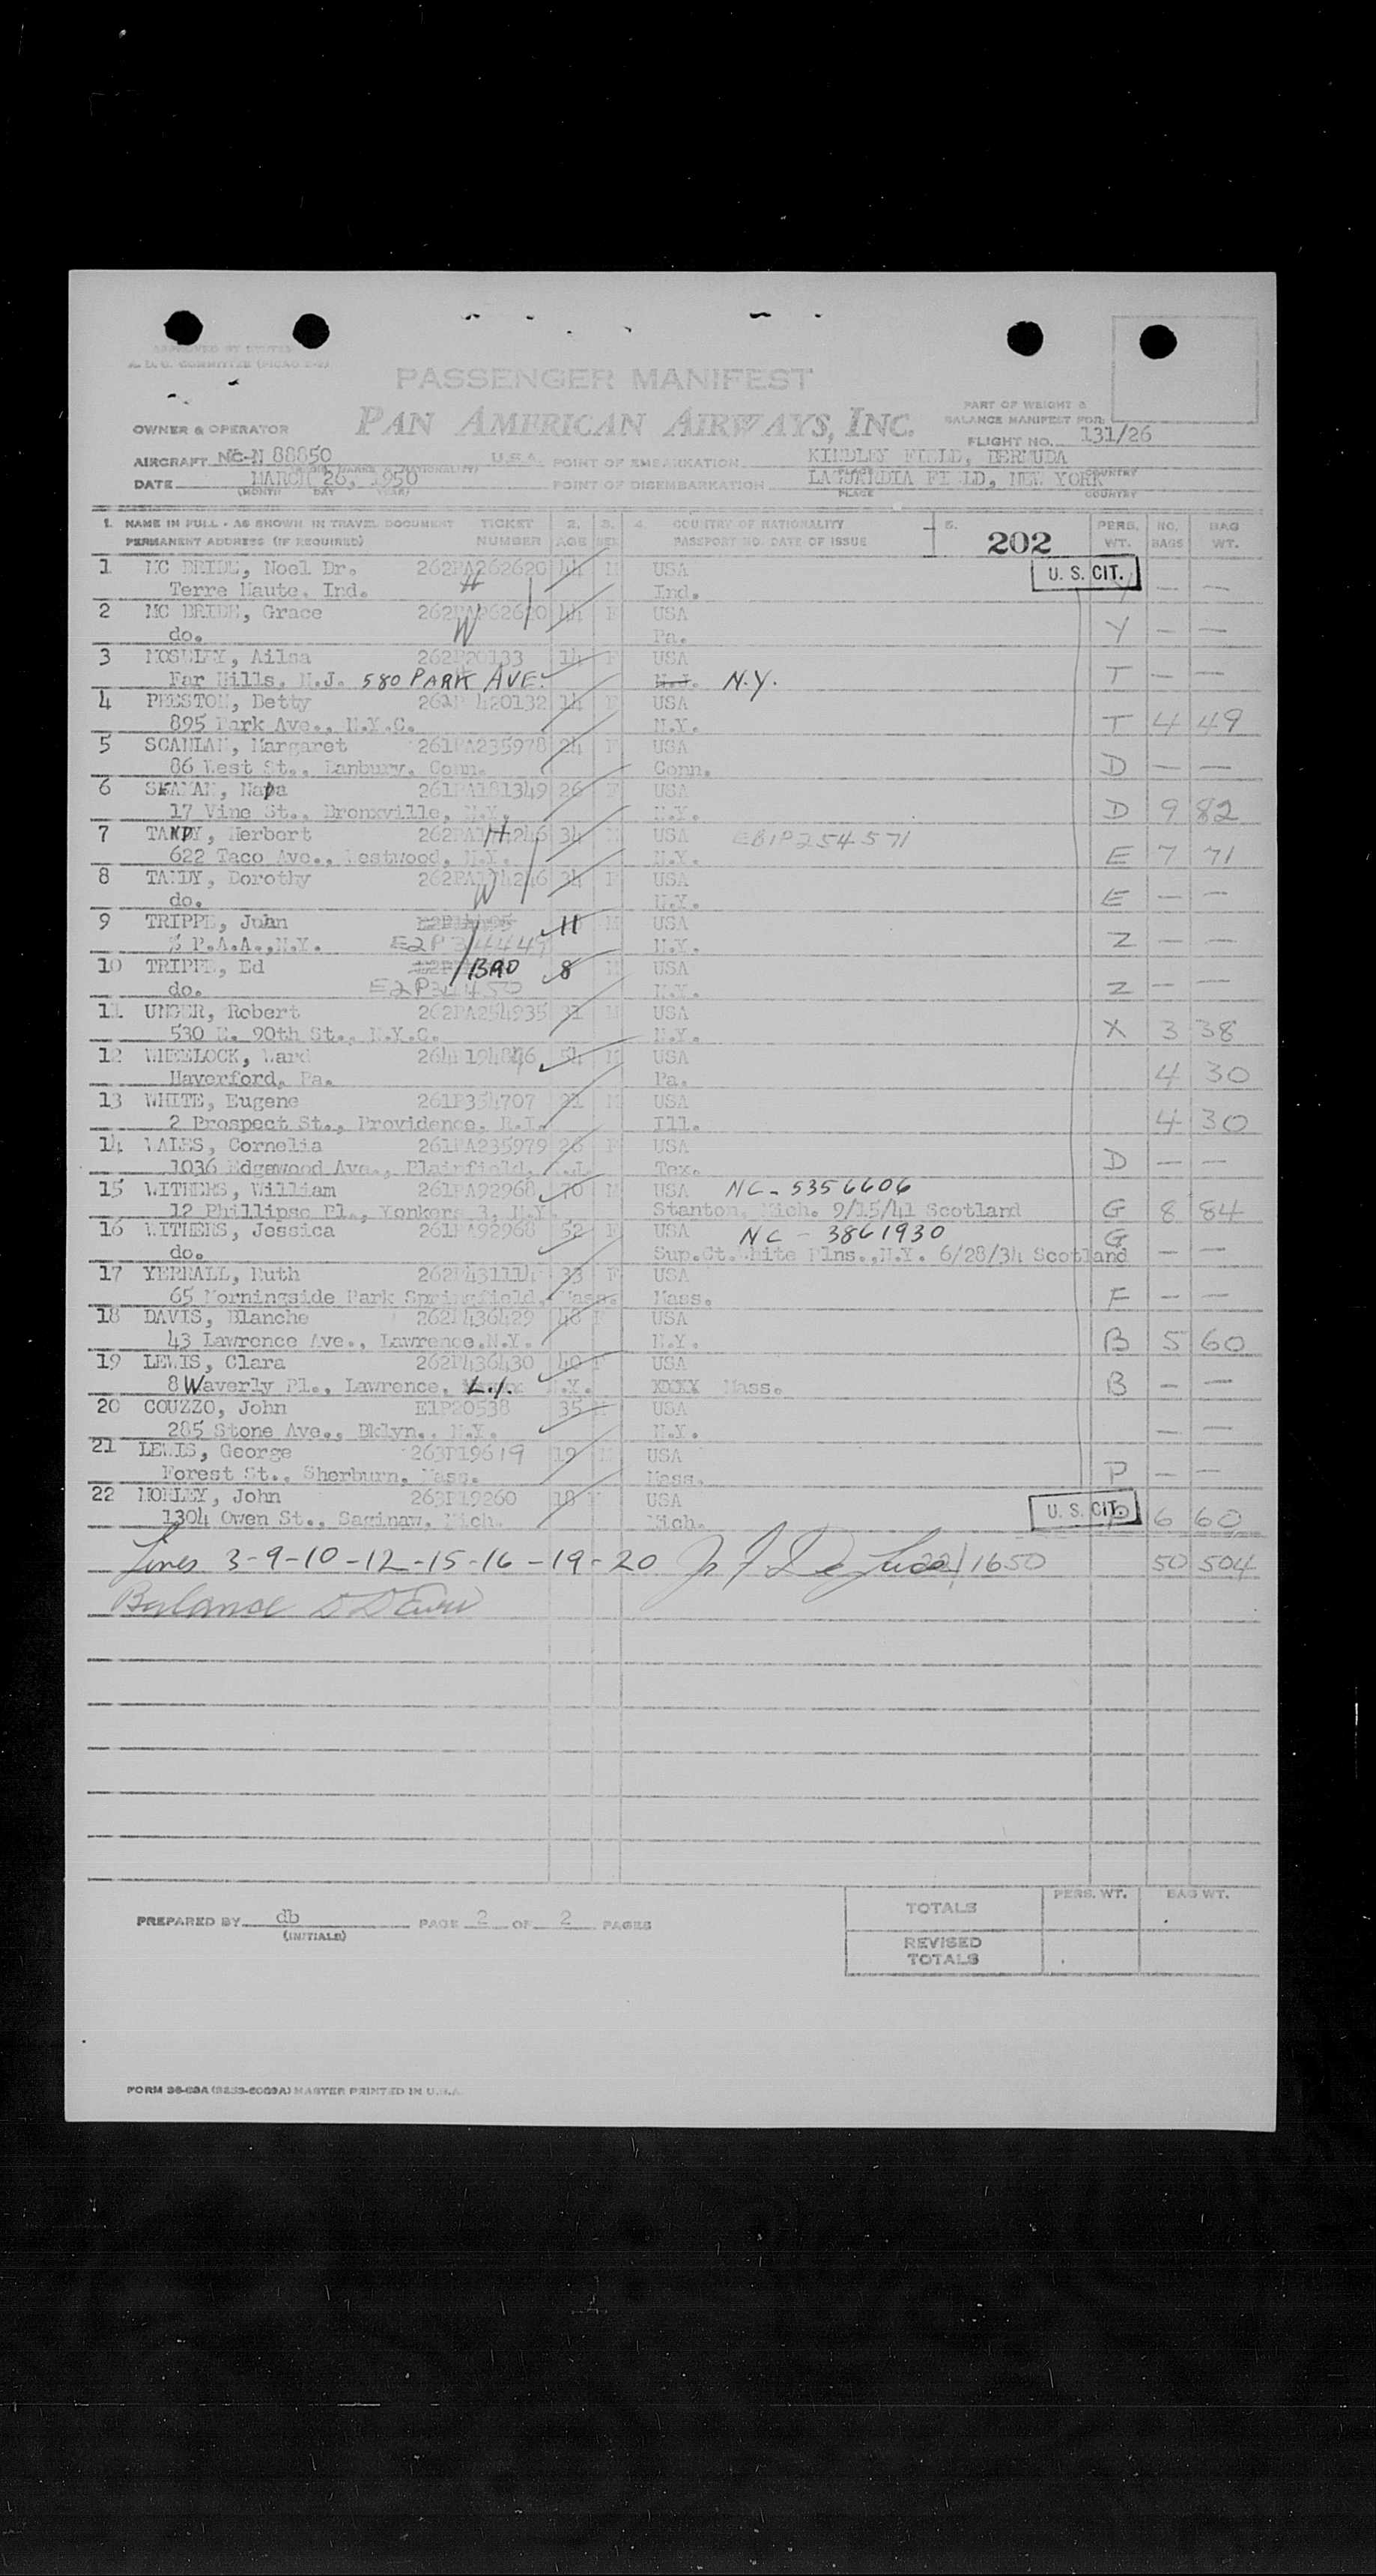 APPROVED BY
A. D. C. COMMITTEE (PICAO 2-2)
PASSENGER MANIFEST
PAN AMERICAN AIRWAYS, INC.
PART OF WEIGHT &
BALANCE MANIFEST FOR:
OWNER & OPERATOR
FLIGHT NO. 131/26
AIRCRAFT NC-N 88850 U.S.A. POINT OF EMBARKATION KINDLEY FIELD, BERMUDA
DATE MARCH 26, 1950 POINT OF DISEMBARKATION LAGUARDIA FIELD, NEW YORK
(MONTH DAY YEAR) PLACE COUNTRY
1. NAME IN FULL - AS SHOWN IN TRAVEL DOCUMENT TICKET 2. 3. 4. COUNTRY OF NATIONALITY 5. 202 PERS. NO. BAG
PERMANENT ADDRESS (IF REQUIRED) NUMBER AGE SEX PASSPORT NO. DATE OF ISSUE WT. BAGS WT.
1 MC BRIDE, Noel Dr. 262PA262620 44 M USA U. S. CIT.
Terre Haute, Ind. H Ind. Y — —
2 MC BRIDE, Grace 262PA262620 44 F USA
do. W Pa. Y — —
3 MOSELEY, Ailsa 262P20133 14 F USA
Far Hills, N.J. 580 PARK AVE. N.J. N.Y. T — —
4 PRESTON, Betty 262P 420132 14 F USA
895 Park Ave., N.Y.C. N.Y. T 4 49
5 SCANLAN, Margaret 261PA235978 24 F USA
86 West St., Danbury, Conn. Conn. D — —
6 SEAMAN, Nana 261PA181349 26 F USA
17 Vine St., Bronxville, N.Y. N.Y. D 9 82
7 TANDY, Herbert 34 M USA EB1P254571
622 Taco Ave., Westwood, N.Y. N.Y. E 7 71
8 TANDY, Dorothy 34 F USA
do. W N.Y. E — —
9 TRIPPE, John 11 M USA
% P.A.A., N.Y. E2P34449 N.Y. Z — —
10 TRIPPE, Ed BRO 8 M USA
do. E2P34450 N.Y. Z — —
11 UNGER, Robert 262PA254935 31 M USA
530 E. 90th St., N.Y.C. N.Y. X 3 38
12 WHEELOCK, Ward 264A194846 54 M USA
Haverford, Pa. Pa. 4 30
13 WHITE, Eugene 261P354707 21 M USA
2 Prospect St., Providence, R.I. Ill. 4 30
14 WALES, Cornelia 261PA235979 26 F USA
1036 Edgewood Ave., Plainfield, N.J. Tex. D — —
15 WITHERS, William 261PA92968 70 M USA NC - 5356606
12 Phillipse Pl., Yonkers 3, N.Y. Stanton, Mich. 9/15/41 Scotland G 8 84
16 WITHERS, Jessica 261PA92968 52 F USA NC - 3861930
do. Sup.Ct.White Plns.,N.Y. 6/28/34 Scotland G — —
17 YERRALL, Ruth 33 F USA
65 Morningside Park Springfield, Mass. Mass. F — —
18 DAVIS, Blanche 262P436429 48 F USA
43 Lawrence Ave., Lawrence,N.Y. N.Y. B 5 60
19 LEWIS, Clara 262P436430 40 F USA
8 Waverly Pl., Lawrence, L.I. N.Y. XXXX Mass. B — —
20 COUZZO, John E1P20538 35 M USA
285 Stone Ave., Bklyn., N.Y. N.Y. — —
21 LEWIS, George 263P19619 19 M USA
Forest St., Sherburn, Mass. Mass. P — —
22 MORLEY, John 263P19260 18 M USA U. S. CIT.
1304 Owen St., Saginaw, Mich. Mich. P 6 60
Lines 3-9-10-12-15-16-19-20 1650 50 504
Balance
PREPARED BY db PAGE 2 OF 2 PAGES
(INITIALS)
PERS. WT. BAG WT.
TOTALS
REVISED
TOTALS
MASTER PRINTED IN U.S.A.